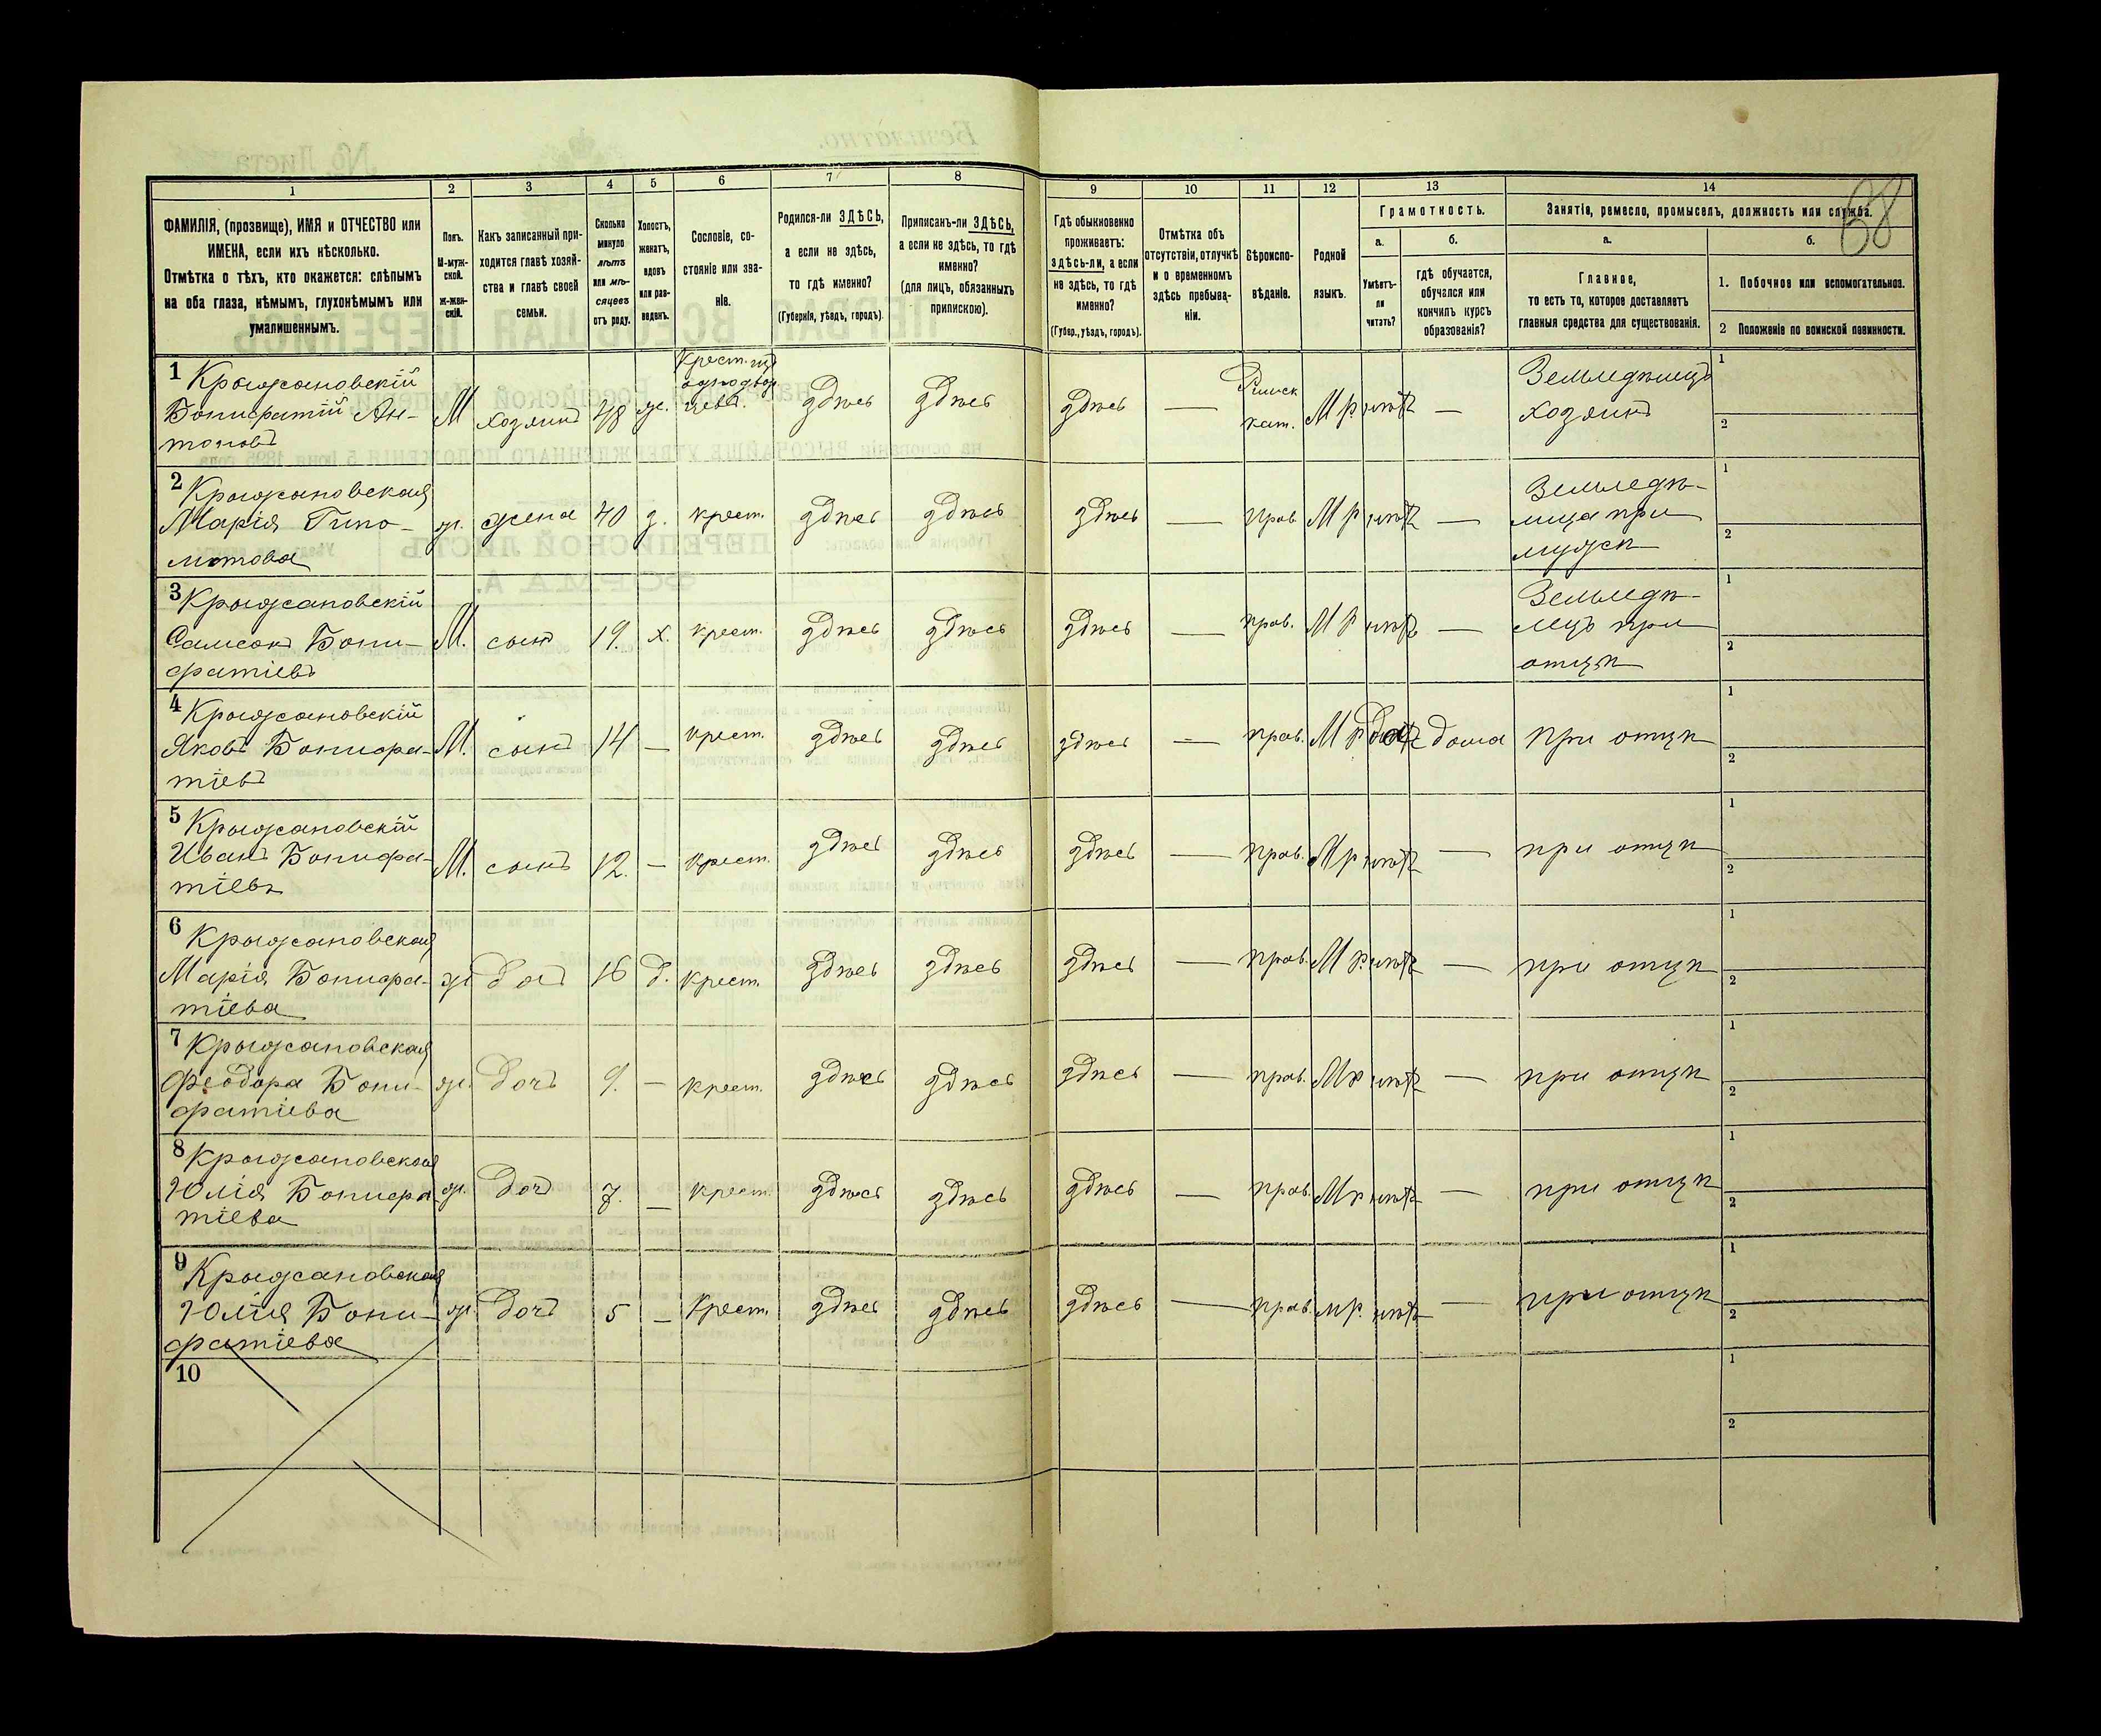 68
1 2 3 4 5 6 7 8 9 10 11 12 13 14
ФАМИЛІЯ, (прозвище), ИМЯ и ОТЧЕСТВО или
ИМЕНА, если ихъ нѣсколько.
Отмѣтка о тѣхъ, кто окажется: слѣпымъ
на оба глаза, нѣмымъ, глухонѣмымъ или
умалишеннымъ.
Полъ.
М-муж-
ской.
Ж-жен-
скій.
Какъ записанный при-
ходится главѣ хозяй-
ства и главѣ своей
семьи.
Сколько
минуло
лѣтъ
или мѣ-
сяцевъ
отъ роду.
Холостъ,
женатъ,
вдовъ
или раз-
веденъ.
Сословіе, со-
стояніе или зва-
ніе.
Родился-ли ЗДѢСЬ,
а если не здѣсь,
то гдѣ именно?
(Губернія, уѣздъ, городъ).
Приписанъ-ли ЗДѢСЬ,
а если не здѣсь, то гдѣ
именно?
(для лицъ, обязанныхъ
припискою).
Гдѣ обыкновенно
проживаетъ:
здѣсь-ли, а если
не здѣсь, то гдѣ
именно?
(Губер., уѣздъ, городъ).
Отмѣтка объ
отсутствіи, отлучкѣ
и о временномъ
здѣсь пребыва-
ніи.
Вѣроиспо-
вѣданіе.
Родной
языкъ.
Грамотность.
а.
Умѣетъ-
ли
читать?
б.
гдѣ обучается,
обучался или
кончилъ курсъ
образованія?
Занятіе, ремесло, промыселъ, должность или служба.
а.
Главное,
то есть то, которое доставляетъ
главныя средства для существованія.
б.
1. Побочное или вспомогательное.
2 Положеніе по воинской повинности.
1 Крыжановскій
Бонифатій Ан-
тоновъ
М хозяинъ 48 ж.
Крест. изъ
однодвор
цевъ.
здѣсь здѣсь здѣсь —
Римск
кат.
М Р. нѣтъ —
Земледѣлецъ
хозяинъ
1
2
2 Крыжановская
Марія Ипо-
литова
ж. жена 40 з. крест. здѣсь здѣсь здѣсь — прав. М Р нѣтъ —
Земледѣ-
лица при
мужѣ
1
2
3 Крыжановскій
Самсонъ Бони-
фатіевъ
М. сынъ 19. х. крест. здѣсь здѣсь здѣсь — прав. М Р нѣтъ —
Земледѣ-
лецъ при
отцѣ
1
2
4 Крыжановскій
Яковъ Бонифа-
тіевъ
М. сынъ 14 — крест. здѣсь здѣсь здѣсь — прав. М Р да дома при отцѣ
1
2
5 Крыжановскій
Иванъ Бонифа-
тіевъ
М. сынъ 12. — крест. здѣсь здѣсь здѣсь — прав. М Р нѣтъ — при отцѣ
1
2
6 Крыжановская
Марія Бонифа-
тіева
ж дочъ 16 д. крест. здѣсь здѣсь здѣсь — прав. М Р. нѣтъ — при отцѣ
1
2
7 Крыжановская
Феодора Бони-
фатіева
ж. дочь 9. — крест. здѣсь здѣсь здѣсь — прав. М Р нѣтъ — при отцѣ
1
2
8 Крыжановская
Юлія Бонифа
тіева
ж. дочъ 7. — крест. здѣсь здѣсь здѣсь — прав. М Р нѣтъ — при отцѣ
1
2
9 Крыжановская
Юлія Бони-
фатіева
ж. дочъ 5 — крест. здѣсь здѣсь здѣсь — прав. М Р. нѣтъ — при отцѣ
1
2
10
1
2